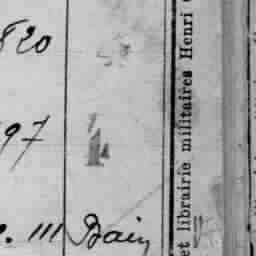 820
97
III Bain
et librairie militaires Henri